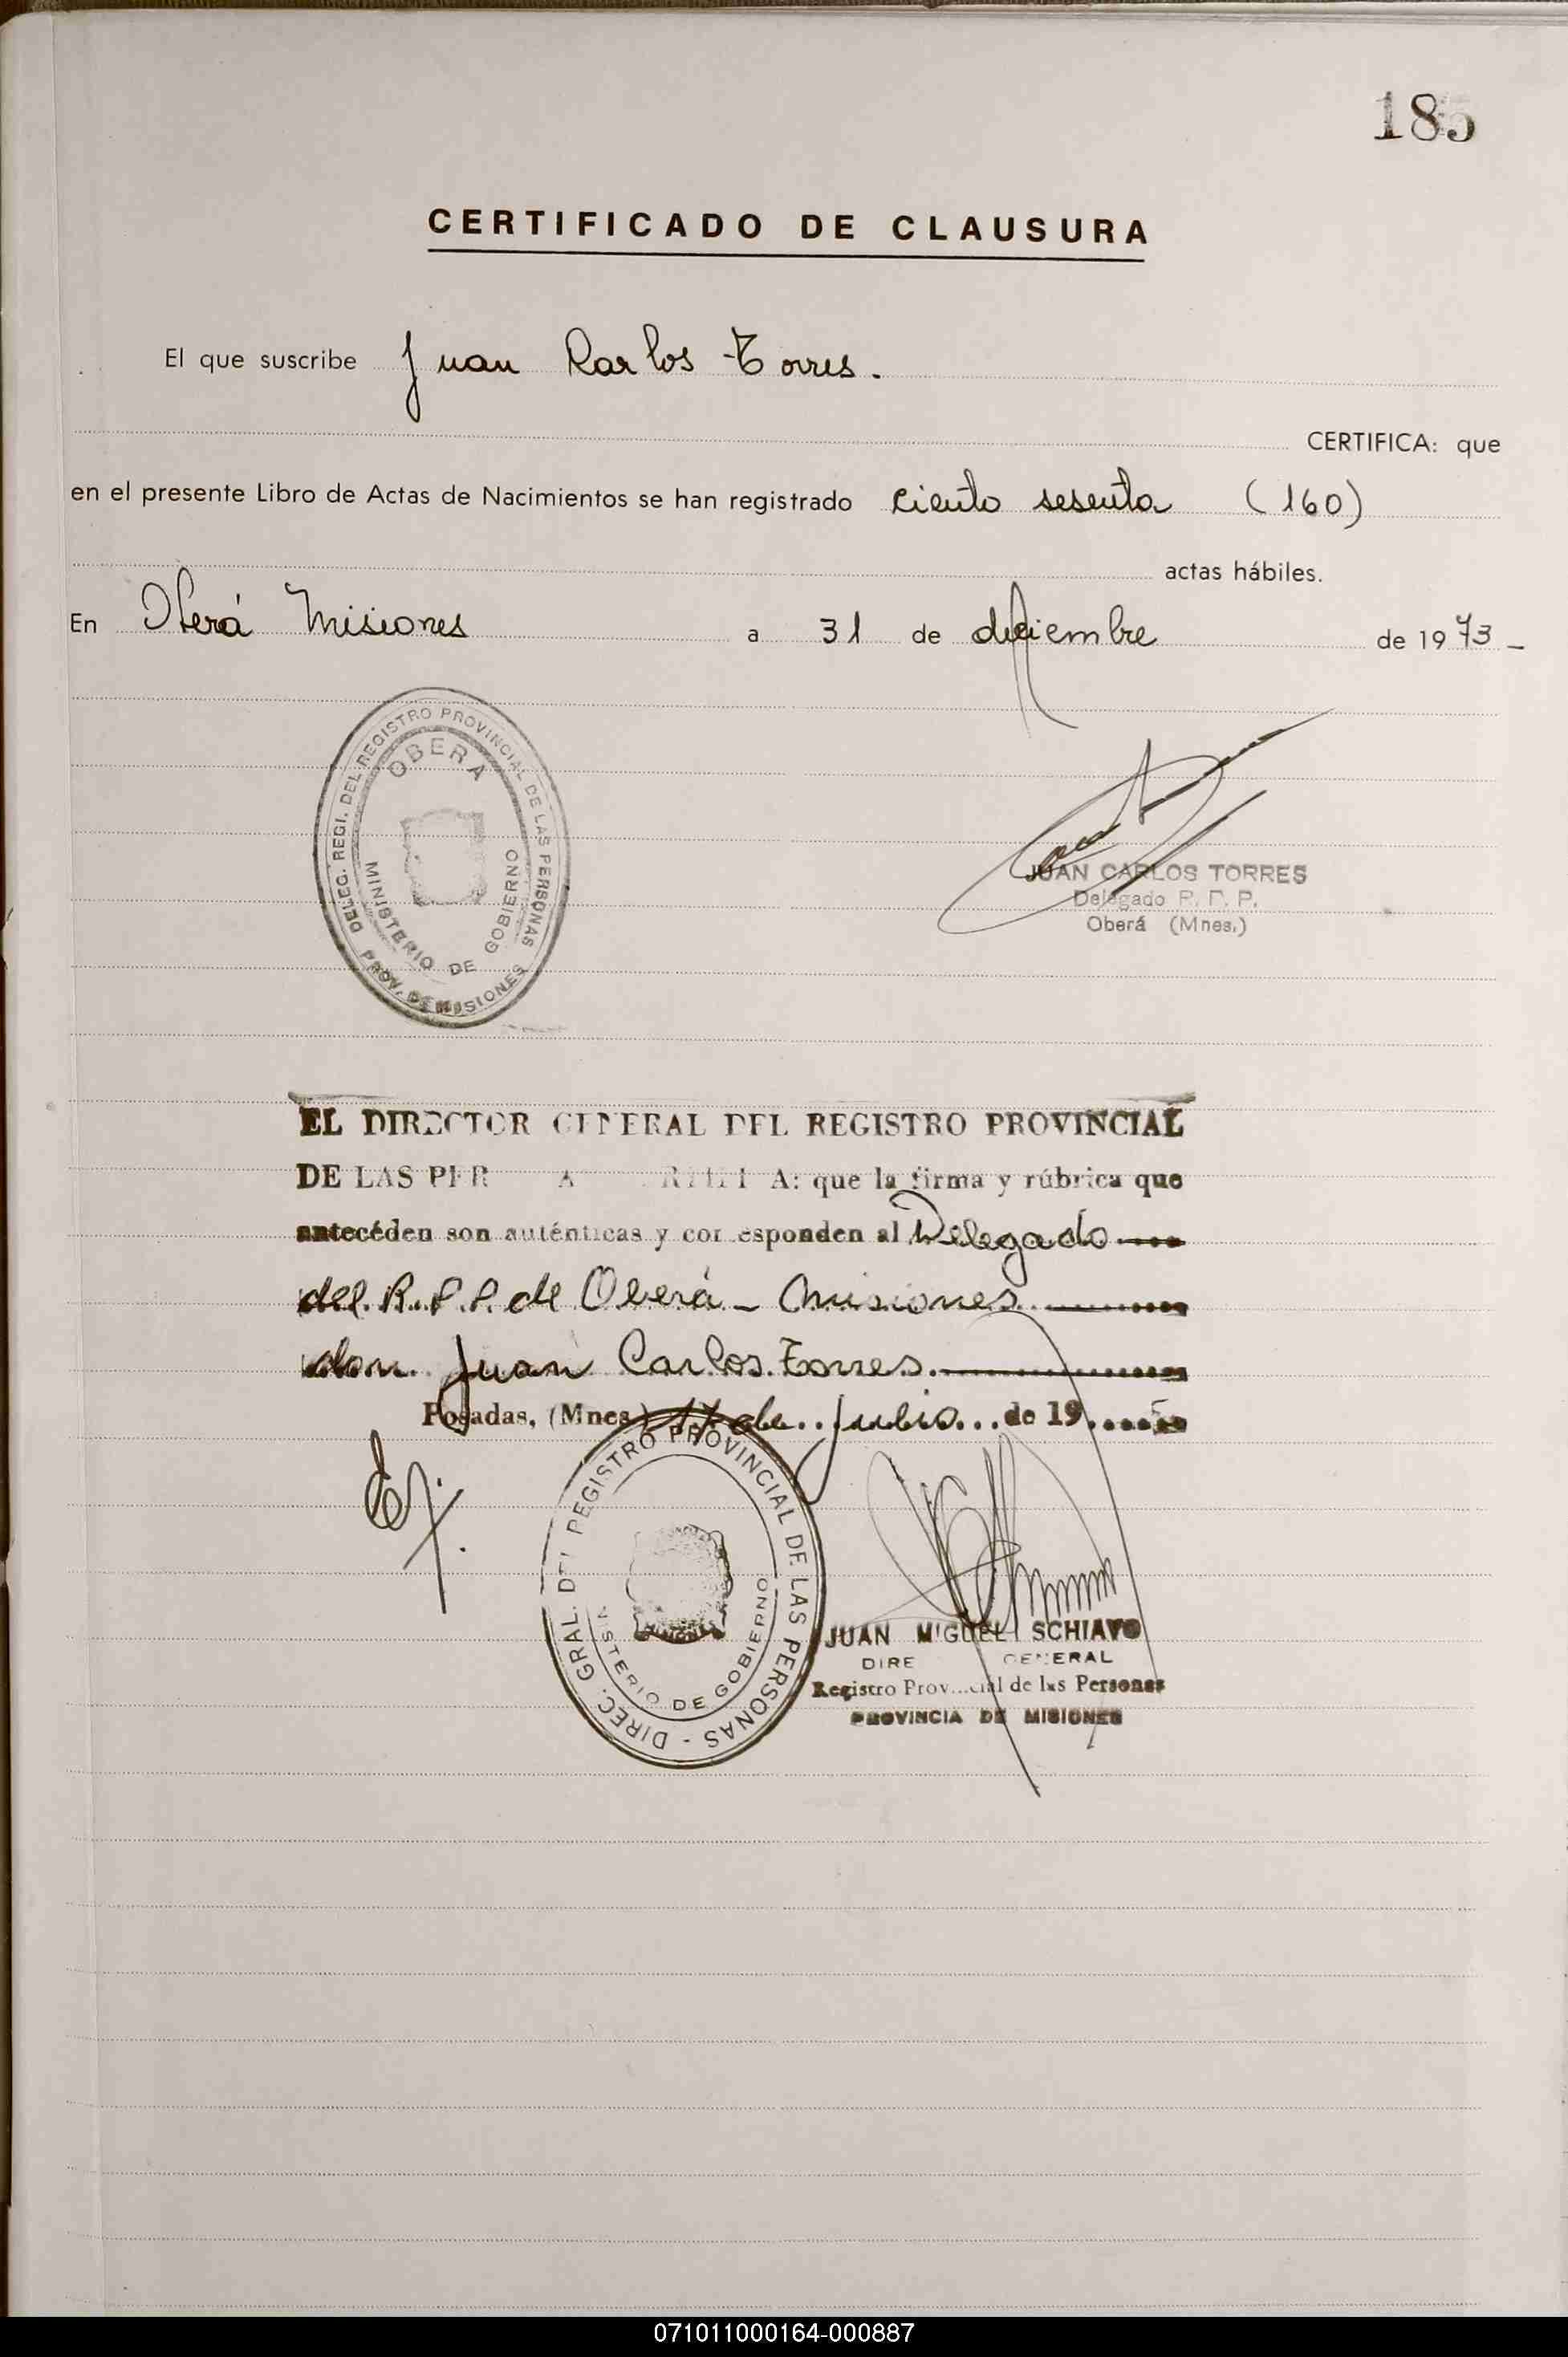 185
CERTIFICADO DE CLAUSURA
El que suscribe Juan Carlos Torres.
CERTIFICA: que
en el presente Libro de Actas de Nacimientos se han registrado ciento sesenta (160)
actas hábiles.
En Oberá Misiones a 31 de diciembre de 1973 -
DELEG. REGI. DEL REGISTRO PROVINCIAL DE LAS PERSONAS
OBERA
MINISTERIO DE GOBIERNO
PROV. DE MISIONES
JUAN CARLOS TORRES
Delegado R. P. P.
Oberá (Mnes.)
EL DIRECTOR GENERAL DEL REGISTRO PROVINCIAL
DE LAS A: que la firma y rúbrica que
antecéden son auténticas y corresponden al Delegado
del R.P.P. de Oberá - Misiones
don Juan Carlos Torres.
Posadas, (Mnes.) 17 de Julio de 19
DIREC. GRAL. DEL REGISTRO PROVINCIAL DE LAS PERSONAS -
MINISTERIO DE GOBIERNO
JUAN MIGUEL SCHIAVO
DIRE GENERAL
Registro Provincial de las Personas
PROVINCIA DE MISIONES
071011000164-000887